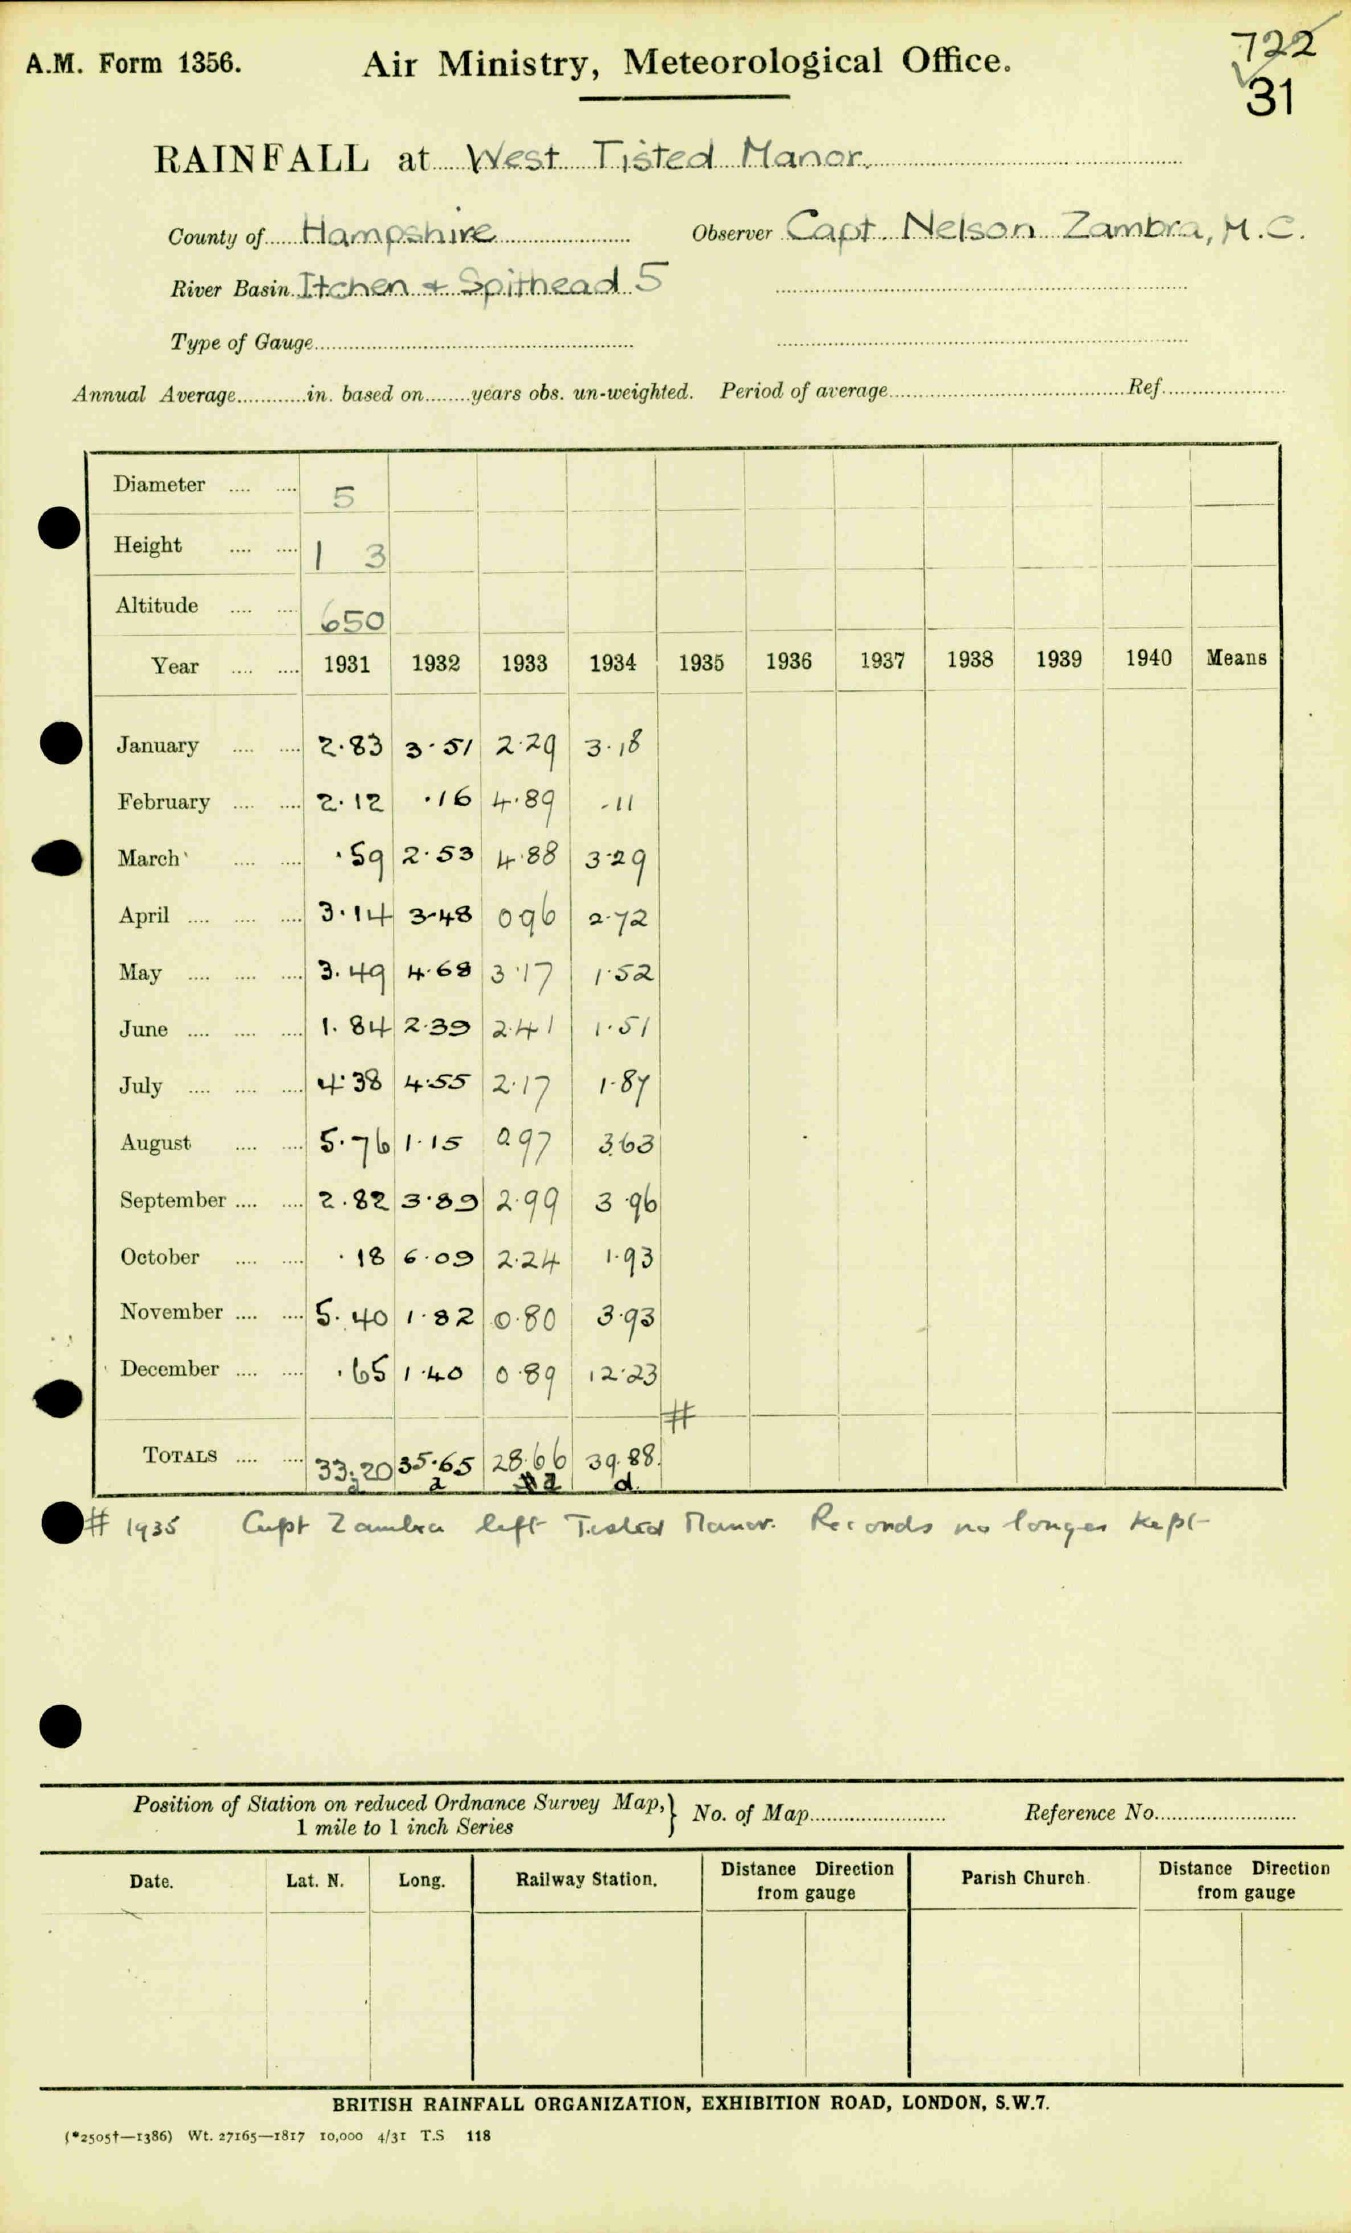 A.M. Form 1356.
Air Ministry, Meteorological Office.
722
31
RAINFALL at West Tisted Manor.
County of Hampshire Observer Capt. Nelson Zambra, M.C.
River Basin Itchen & Spithead 5
Type of Gauge
Annual Average in. based on years obs. un-weighted. Period of average Ref.
Diameter 5
Height 1 3
Altitude 650
Year 1931 1932 1933 1934 1935 1936 1937 1938 1939 1940 Means
January 2.83 3.51 2.29 3.18
February 2.12 .16 4.89 .11
March .59 2.53 4.88 3.29
April 3.14 3.48 0.96 2.72
May 3.49 4.68 3.17 1.52
June 1.84 2.39 2.41 1.51
July 4.38 4.55 2.17 1.87
August 5.76 1.15 0.97 3.63
September 2.82 3.89 2.99 3.96
October .18 6.09 2.24 1.93
November 5.40 1.82 0.80 3.93
December .65 1.40 0.89 12.23
#
TOTALS 33.20 35.65 28.66 39.88
a a a d.
# 1935 Capt Zambra left Tisted Manor. Records no longer kept
Position of Station on reduced Ordnance Survey Map, } No. of Map Reference No.
1 mile to 1 inch Series
Date. Lat. N. Long. Railway Station. Distance Direction from gauge Parish Church. Distance Direction from gauge
BRITISH RAINFALL ORGANIZATION, EXHIBITION ROAD, LONDON, S.W.7.
(*2505†—1386) Wt. 27165—1817 10,000 4/31 T.S 118